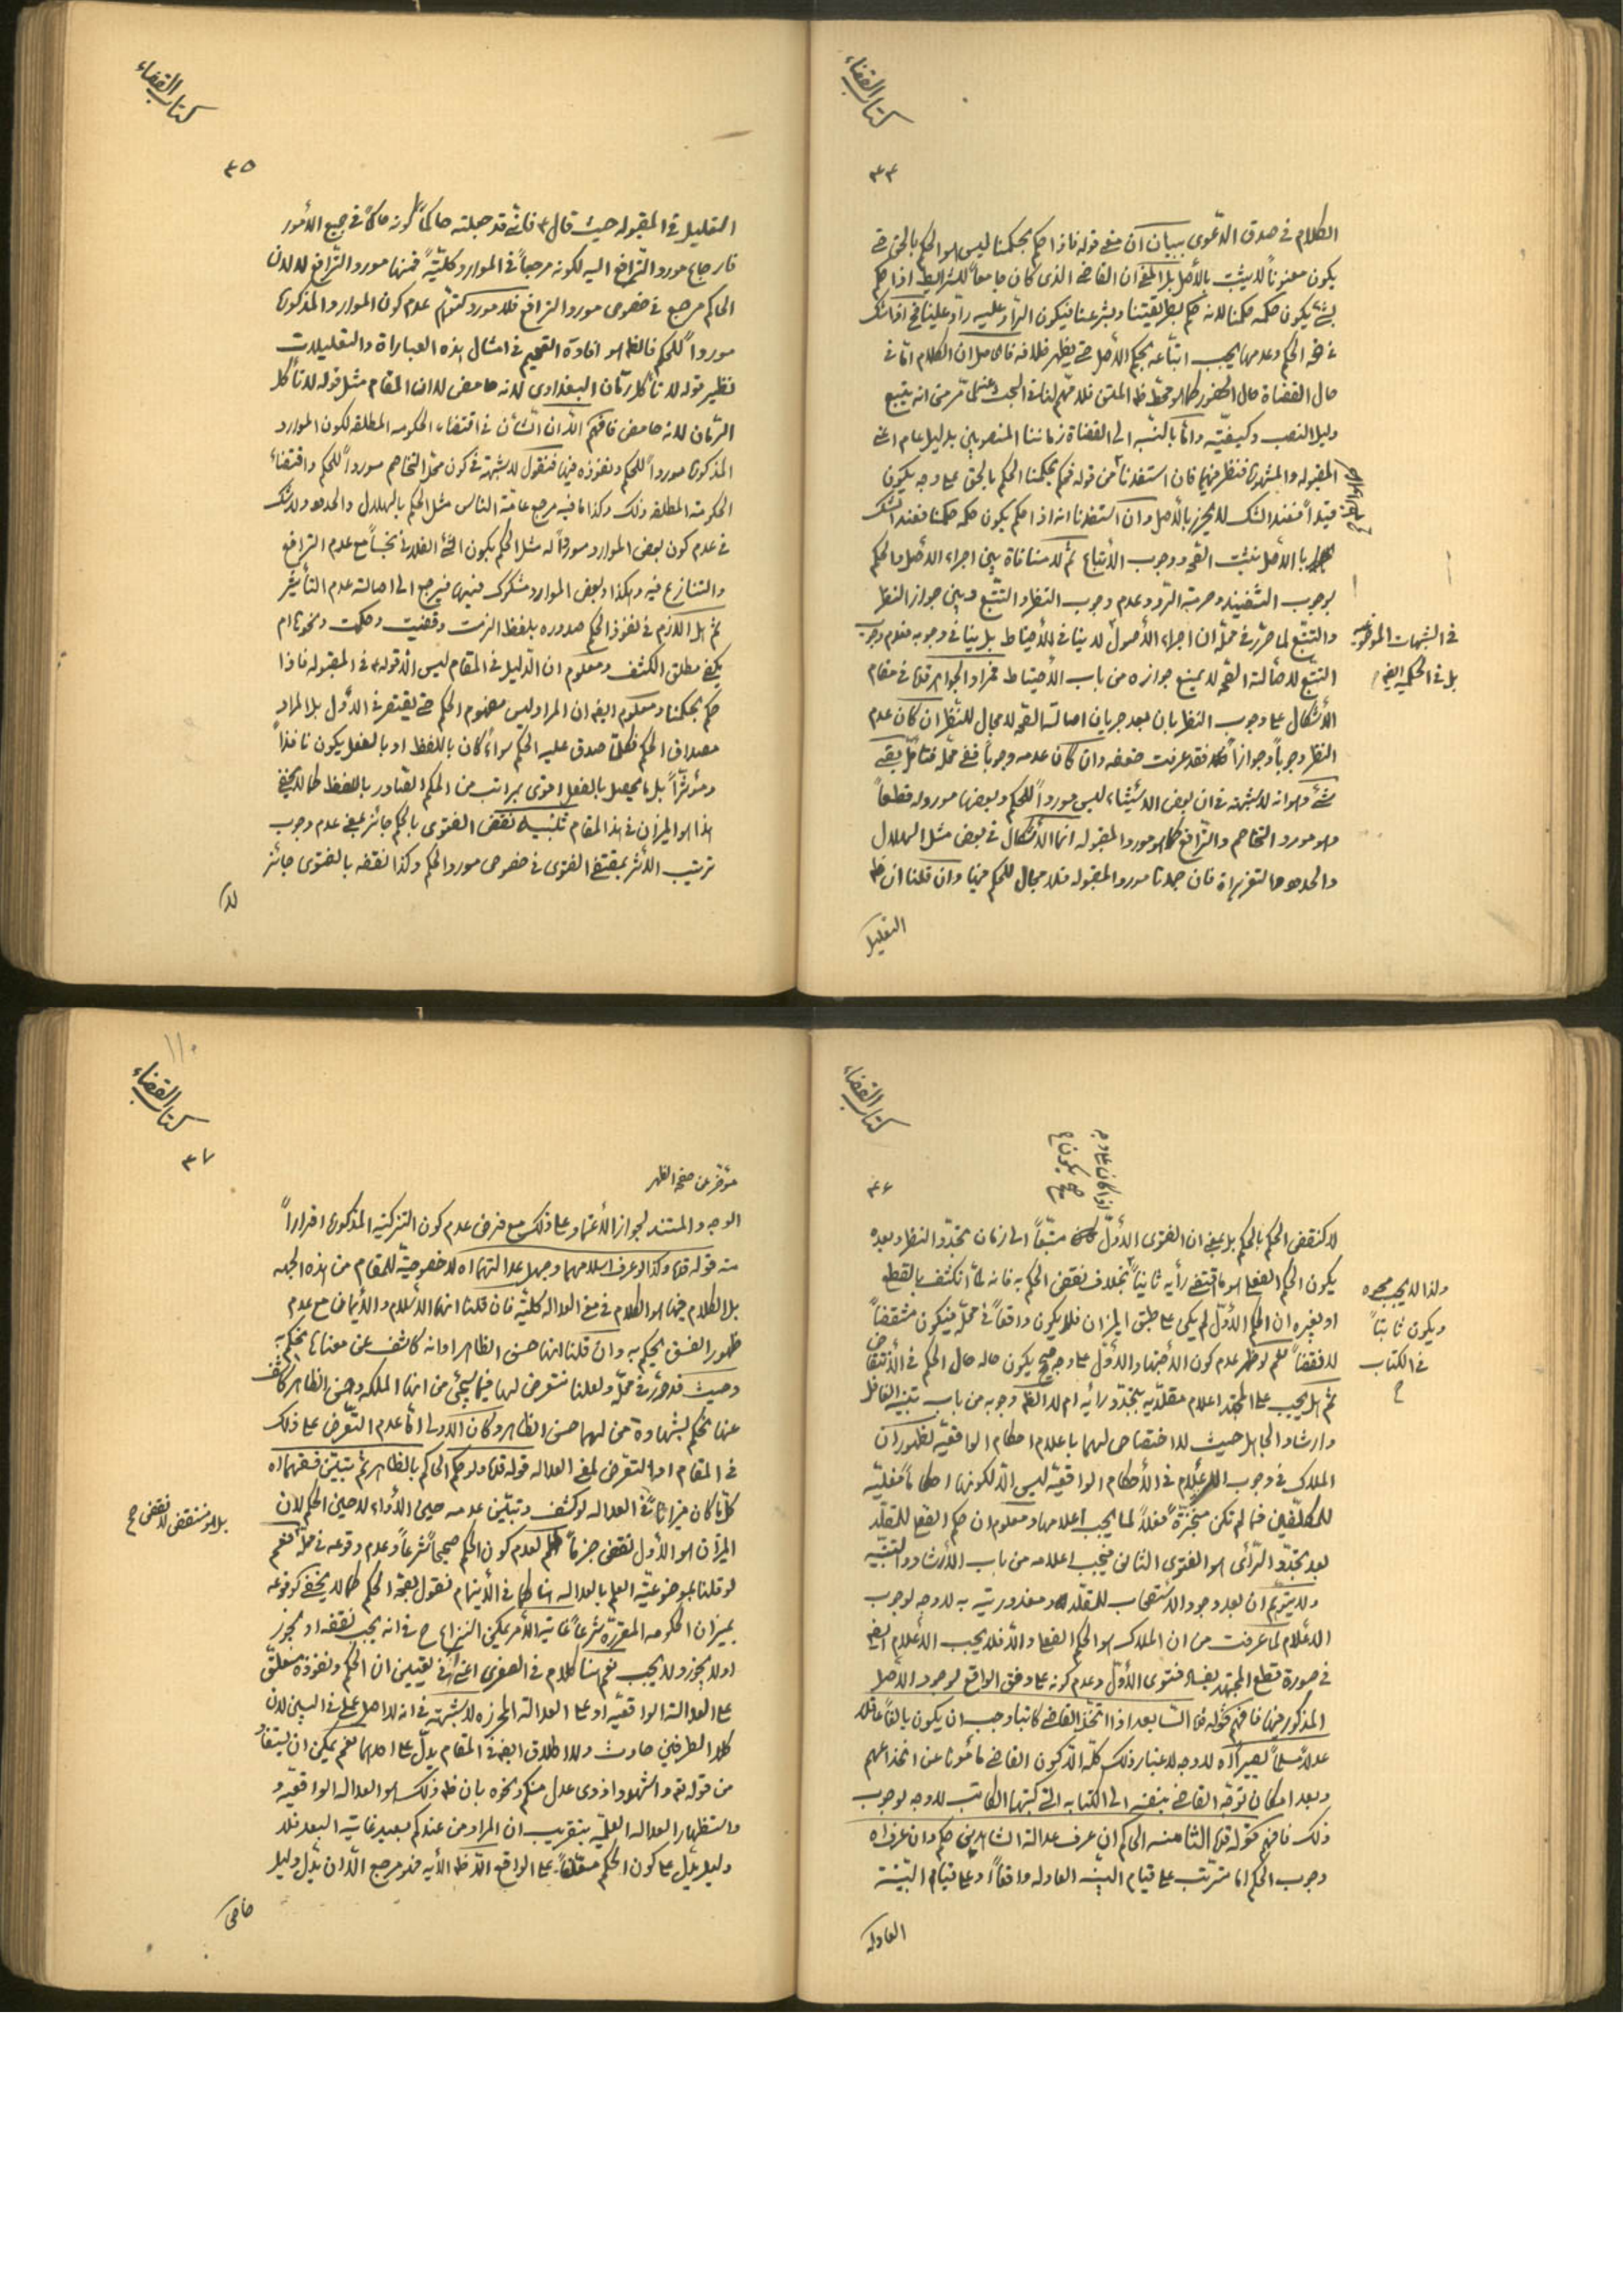 كتاب القضاء
٣٤
الكلام في صدق الدّعوى ببيان ان معنى قوله فاذا حكم بحكمنا ليس هو الحكم بالحق حتى
يكون معنوناً لا يثبت بالأصل بل المعنى ان القاضي الذي كان جامعاً للشرايط اذا حكم
بشئ يكون حكمه حكمنا لانه حكم بطريقتنا وبشرعنا فيكون الرّاد عليه رادّ علينا فح اذا شك
في صحة الحكم وعدمها يجب اتباعه بحكم الأصل حتى يظهر خلافه فالحاصل ان الكلام امّا في
حال القضاة حال الحضور كما هو محطّ نظر المتن فلا مهمّ لنا في البحث عنه كما مرّ من انه يتبع
دليل النصب وكيفيّته وامّا بالنّسبة الى القضاة زماننا المنصوبين بدليل عام اعني
المقبولة والمشهورة فننظر فيها فان استفدنا من قوله فحكم بحكمنا الحكم بالحق على وجه يكون
قيداً فعند الشك لا يحرز بالأصل وان استفدنا انه اذا حكم يكون حكمه حكمنا فعند الشك
بالأصل نثبت الصحّة ووجوب الأتباع ثم لا منافاة بين اجراء الأصل والحكم
بوجوب التنفيذ وحرمة الرّد وعدم وجوب النظر والتتبّع وبين جواز النظر
والتتبّع لما حرّر في محلّه ان اجراء الأصول لا ينافي للأحتياط بل ينافي وجوبه فعدم وجوب
في الشبهات الموضوعيّة
بل في الحكمية ايضا
التتبّع لأصالة الصحّة لا يمنع جوازه من باب الأحتياط فمراد الجواهر قدّه في مقام
الأشكال على وجوب النظر بان بعد جريان اصالة الصحّة لا مجال للنّظر ان كان عدم
النظر وجوباً وجوازاً فقد عرفت ضعفه وان كان عدمه وجوباً ففي محلّه فتأمّل بقي
شئ وهو انه لا شبهة في ان بعض الاشياء ليس مورداً للحكم وبعضها مورد له قطعاً
وهو مورد التخاصم والتّرافع كما هو مورد المقبولة انما الأشكال في بعض مثل الهلال
والحدود والتعزيرات فان جعلنا مورد المقبولة فلا مجال للحكم فيها وان قلنا ان ظ
التعليل
كتاب القضاء
٣٥
التعليل في المقبولة حيث قال ع فانّي قد جعلته حاكماً كونه حاكماً في جميع الأمور
فارجاع مورد التّرافع اليه لكونه مرجعاً في الموارد كليّةً فمنها مورد التّرافع لا لان
الحاكم مرجع في خصوص مورد الترافع فلا مورد لتوهّم عدم كون الموارد المذكورة
مورداً للحكم فالظ هو افادة التعميم في امثال هذه العبارات والتعليلات
نظير قوله لا تأكل رمّان البغدادي لانه حامض لا ان المقام مثل قوله لا تأكل
الرمّان لانه حامض فافهم الا ان الشأن في اقتضاء الحكومة المطلقة لكون الموارد
المذكورة مورداً للحكم ونفوذه فيها فنقول لا شبهة في كون محلّ التخاصم مورداً للحكم واقتضاء
الحكومة المطلقة ذلك وكذا ما فيه مرجع عامّة الناس مثل الحكم بالهلال والحدود ولا شك
في عدم كون بعض الموارد مورداً له مثل الحكم بكون الشئ الفلاني نجساً مع عدم الترافع
والتنازع فيه وهكذا وبعض الموارد مشكوك فيها فيرجع الى اصالة عدم التأثير
ثم هل اللازم في نفوذ الحكم صدوره بلفظ الزمت وقضيت وحكمت ونحوها ام
يكفي مطلق الكشف ومعلوم ان الدّليل في المقام ليس الا قوله ع في المقبولة فاذا
حكم بحكمنا ومعلوم ايضا ان المراد ليس مفهوم الحكم حتى يقتصر في الأوّل بل المراد
مصداق الحكم فكلّما صدق عليه الحكم سواءً كان باللفظ او بالفعل يكون نافذاً
ومؤثّراً بل ما يحصل بالفعل اقوى بمراتب من الحكم الصّادر باللفظ كما لا يخفى
هذا هو الميزان في هذا المقام تنبيه نقض الفتوى بالحكم جائز بمعنى عدم وجوب
ترتيب الأثر بمقتضى الفتوى في خصوص مورد الحكم وكذا نقضه بالفتوى جائز
لا
كتاب القضاء
٣٦
لا كنقض الحكم بالحكم بل بمعنى ان الفتوى الأوّل متّبعاً الى زمان تجدّد النظر وبعده
يكون الحكم الفعلي هو ما اقتضى رأيه ثانياً بخلاف نقض الحكم به فانه لمّا انكشف بالقطع
او بغيره ان الحكم الأوّل لم يكن على طبق الميزان فلا يكون واقعاً في محلّه فيكون منتقضاً
ولذا لا يجب مجوه
ويكون ثابتاً
في الكتاب
ح
لا نقضاً نعم لو ظهر عدم كون الأجتهاد الأوّل على وجه صحيح يكون حاله حال الحكم في الأنتقاض
ثم هل يجب على المجتهد اعلام مقلّديه بتجدّد رأيه ام لا الظ وجوبه من باب تنبيه الغافل
وارشاد الجاهل حيث لا اختصاص لهما باعلام احكام الواقعيّة لظهور ان
الملاك في وجوب الأعلام في الأحكام الواقعيّة ليس الّا لكونها احكاماً فعليّة
للمكلّفين فما لم تكن منجّزة فعلاً لما يجب اعلامها ومعلوم ان حكم الفعلي للمقلّد
بعد تجدّد الرّأي هو الفتوى الثاني فيجب اعلامه من باب الأرشاد والتنبيه
ولا يتوهّم ان بعد وجود الأستصحاب للمقلّد ومعذوريته به لا وجه لوجوب
الأعلام لما عرفت من ان الملاك هو الحكم الفعلي والّا فلا يجب الأعلام ايضا
في صورة قطع المجتهد بفساد فتوى الأوّل وعدم كونه على وفق الواقع لوجود الأصل
المذكور فيها فافهم قوله قدّه السّابعة اذا اتّخذ القاضي كاتبا وجب ان يكون بالغاً عاقلا
عدلاً مسلماً بصيراً اه لا وجه لاعتبار ذلك كلّه الّا كون القاضي مأموناً عن انخداعهم
وبعد امكان توجّه القاضي بنفسه الى الكتابة التي كتبها الكاتب لا وجه لوجوب
ذلك فافهم قوله قدّه الثامنة الحاكم ان عرف عدالة الشاهدين حكم وان عرف اه
وجوب الحكم اما مترتّب على قيام البيّنة العادلة واقعاً او على قيام البيّنة
العادلة
١١٠
كتاب القضاء
٣٧
مؤخر عن صفحة الظهر
الوجه والمستند لجواز الأعتماد على ذلك مع فرض عدم كون التزكية المذكورة اقراراً
منه قوله قدّه وكذا لو عرف اسلامهما وجهل عدالتهما اه لا خصوصيّة للمقام من هذه الجهة
بل الكلام فيها هو الكلام في معنى العدالة كليّة فان قلنا انها الأسلام والأيمان مع عدم
ظهور الفسق يحكم به وان قلنا انها حسن الظاهر او انه كاشف عن معناها يحكم به
وحيث قد حرّر في محلّه ولعلنا نتعرض لها فيما سيجئ من انها الملكة وحسن الظاهر كاشف
عنها يحكم بشهادة من لهما حسن الظاهر وكان الأولى امّا عدم التّعرض على ذلك
في المقام او التعرض لمعنى العدالة قوله قدّه ولو حكم الحاكم بالظاهر ثم تبيّن فسقهما اه
كلّما كان ميزاناً في العدالة لو كشف وتبيّن عدمه حين الأداء لا حين الحكم لان
بل هو منتقض لا نقض ح
الميزان هو الأول نقض جزماً لعدم كون الحكم صحيحاً شرعاً وعدم وقوعه في محلّه نعم
لو قلنا بموضوعيّة العلم بالعدالة هنا كما في الأيتمام نقول بصحّة الحكم كما لا يخفى كوقوعه
بميزان الحكومة المقرّرة شرعاً غاية الأمر يمكن النزاع ح في انه يجب نقضه او يجوز
او لا يجوز ولا يجب نعم هنا كلام في الصغرى اعني في تعيين ان الحكم ونفوذه معلّق
على العدالة الواقعيّة او على العدالة المحرزة لا شبهة في انه لا اصل عملي في البين لان
كلا الطرفين حادث ولا اطلاق ايضا في المقام يدلّ على احدهما نعم يمكن ان يستفاد
من قوله تع واشهدوا ذوى عدل منكم ونحوه بان ظ ذلك هو العدالة الواقعيّة و
واستظهار العدالة العلميّة بتقريب ان المراد من عندكم بعيد غاية البعد فلا
دليل يدلّ على كون الحكم معلّقاً على الواقع الّا ظ الآية فهو مرجع الّا ان يدلّ دليل
خاص